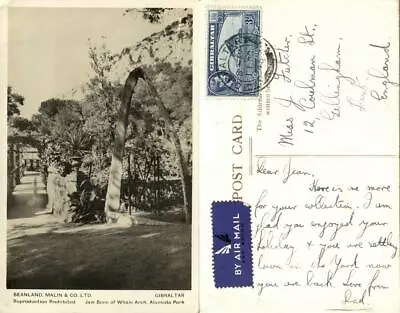 BEANLAND, MALIN & CO. LTD. GIBRALTAR
Reproduction Prohibited Jaw Bone of Whale Arch, Alameda Park
GIBRALTAR
POST CARD
BY AIR MAIL
Miss J.
12,
St.,
Gillingham,
Kent,
England.
Dear Jean,
Here is one more
for your collection. I am
glad you enjoyed your
holiday & you are settling
down in the Yard now
you are back. Love from
Dad.